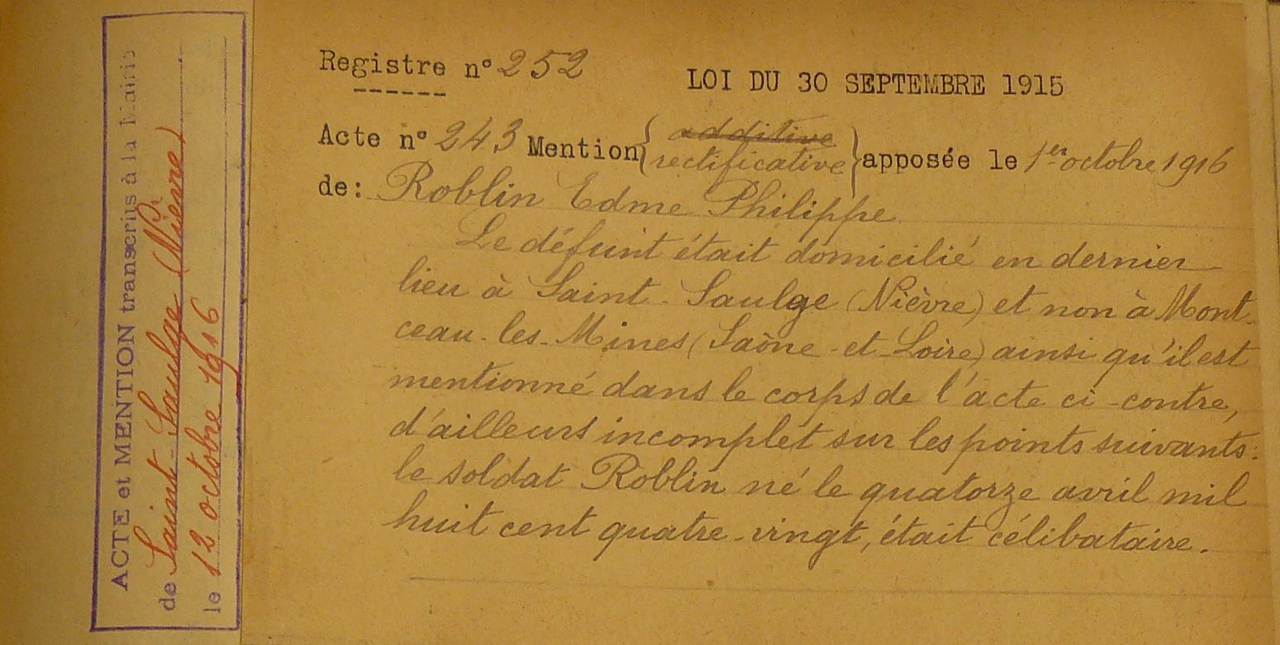 ACTE et MENTION transcrits à la Mairie
de Saint-Saulge (Nièvre)
le 12 octobre 1916
Registre n° 252
LOI DU 30 SEPTEMBRE 1915
Acte n° 243 Mention { additive
rectificative } apposée le 1er octobre 1916
de: Roblin Edme Philippe
Le défunt était domicilié en dernier
lieu à Saint-Saulge (Nièvre) et non à Mont-
ceau-les-Mines (Saône-et-Loire) ainsi qu'il est
mentionné dans le corps de l'acte ci-contre,
d'ailleurs incomplet sur les points suivants:
le soldat Roblin né le quatorze avril mil
huit cent quatre-vingt, était célibataire.